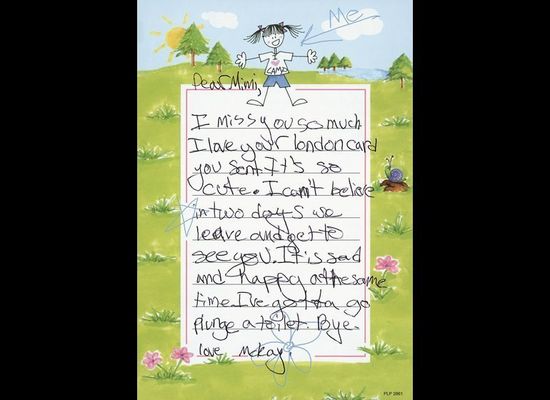 Me
I ♥ CAMP
Dear Mimi,
I miss you so much
I love your london card
you sent. It's so
cute. I can't believe
in two days we
leave and get to
see you. It is sad
and happy at the same
time. I've gotta go
plunge a toilet. Bye.
love, McKay
PLP 2861